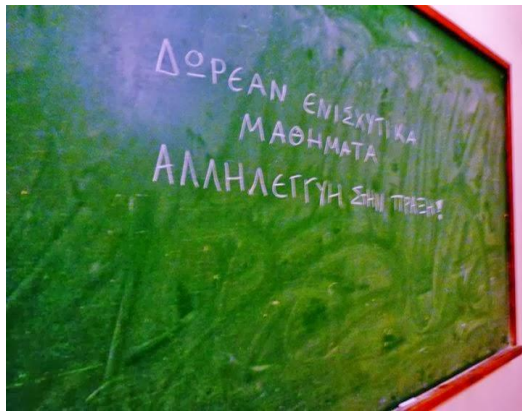 ΔΩΡΕΑΝ ΕΝΙΣΧΥΤΙΚΑ
ΜΑΘΗΜΑΤΑ
ΑΛΛΗΛΕΓΓΥΗ ΣΗΝ ΠΡΑΞΗ!